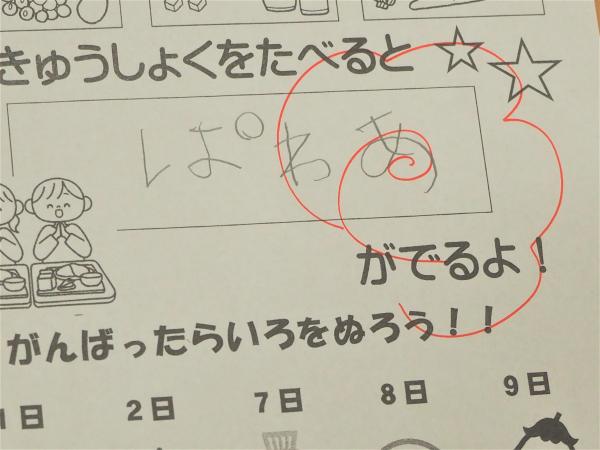 きゅうしょくをたべると
ぱわあ
がでるよ！
がんばったらいろをぬろう！！
1日 2日 7日 8日 9日